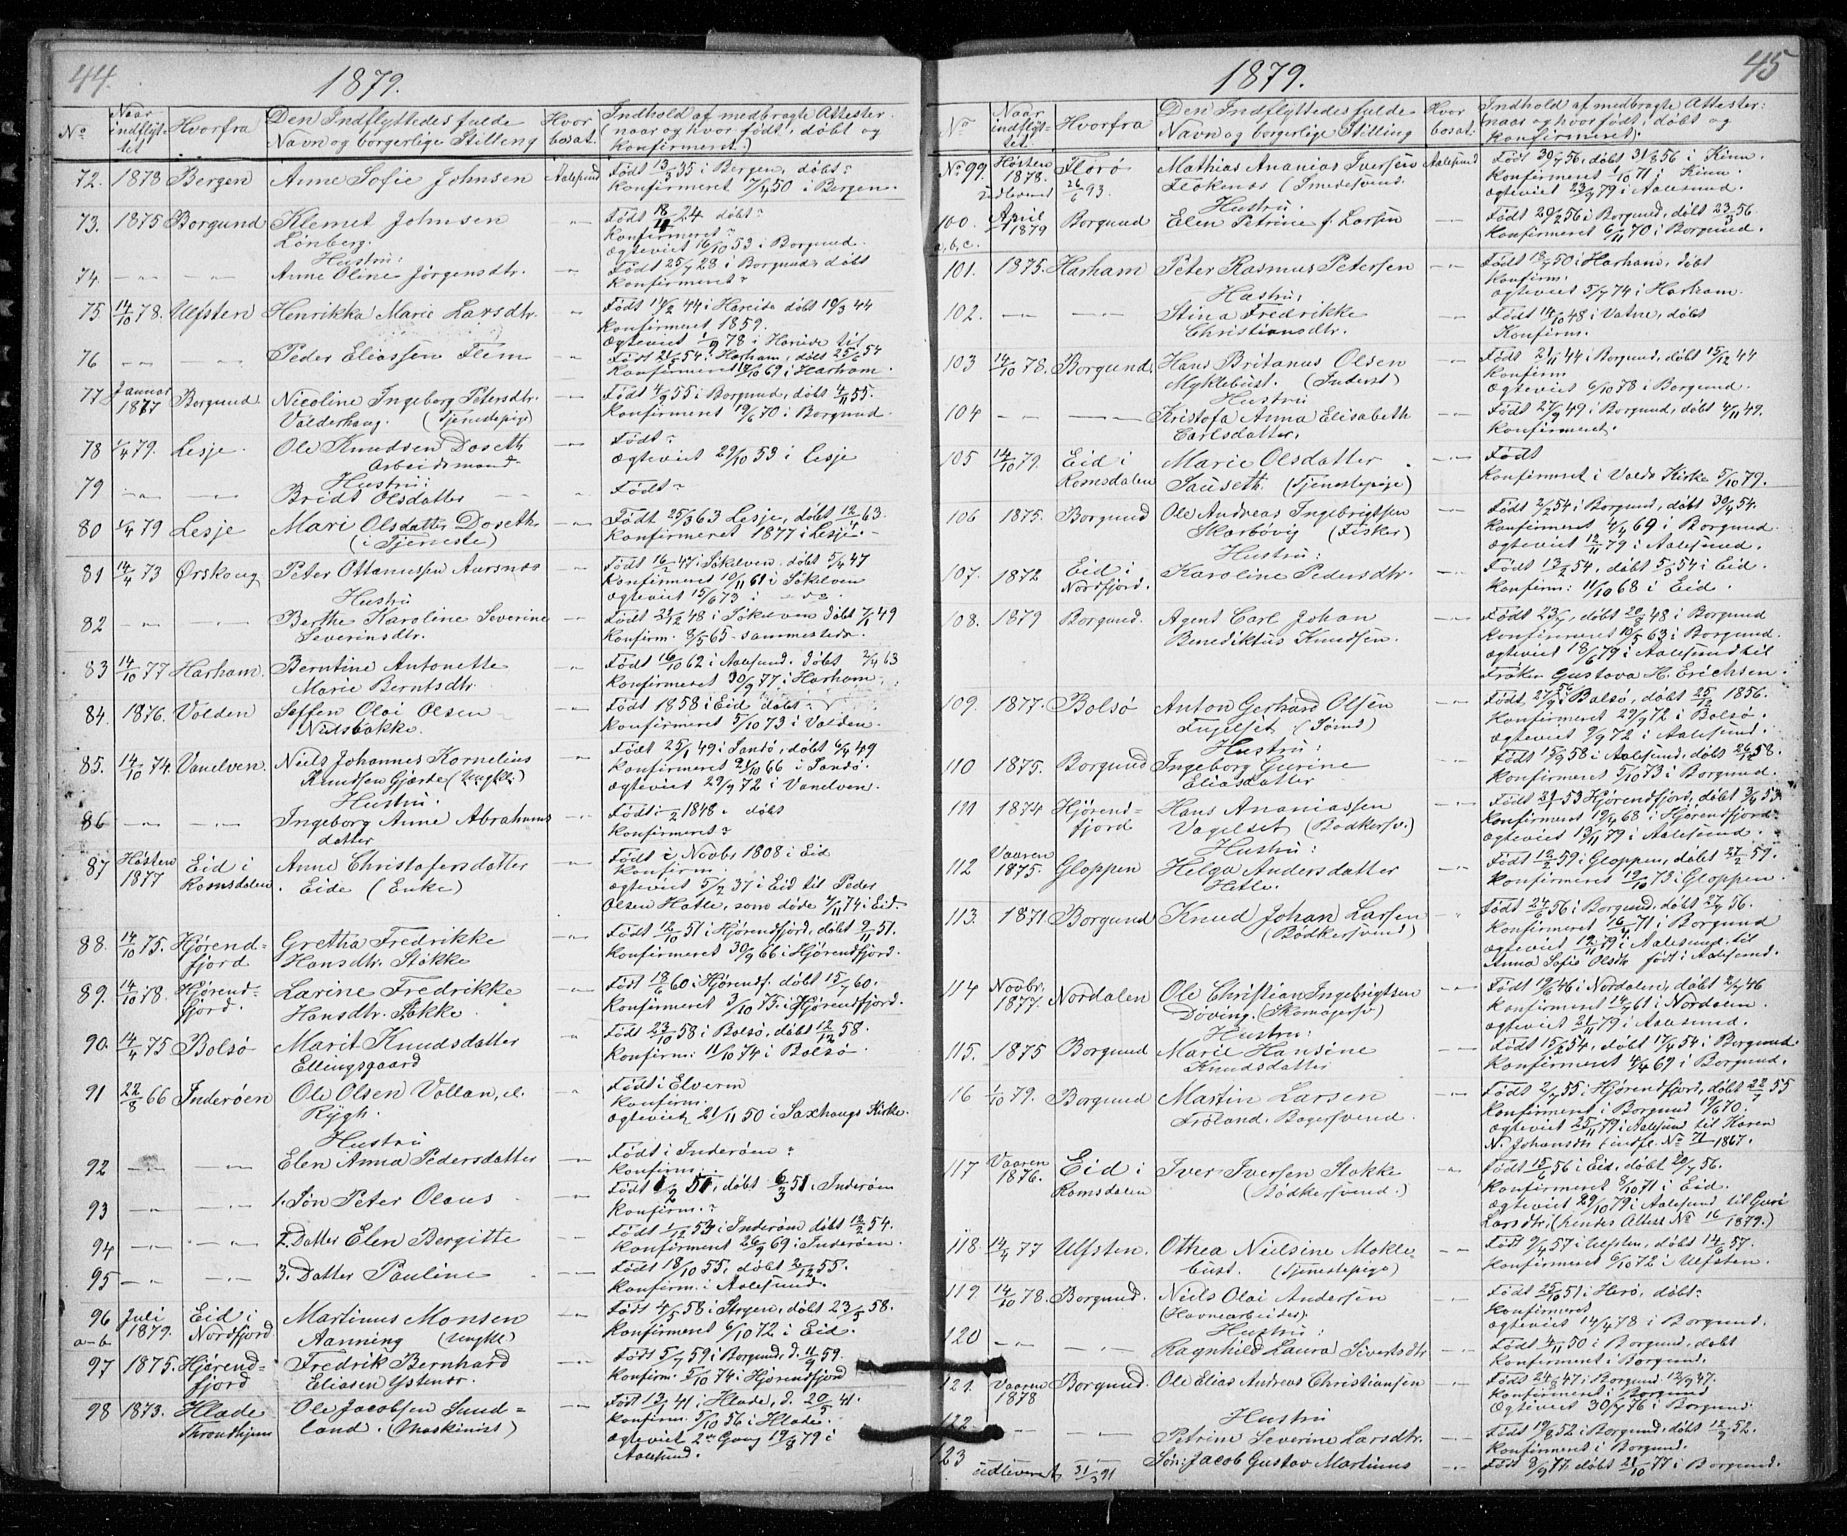 44.
1879.
Nº
Naar indflyttet
Hvorfra
Den Indflyttedes fulde Navn og borgerlige Stilling
Hvor bosat.
Indhold af medbragte Attester (naar og hvor født, døbt og Konfirmeret.)
72. 1878 Bergen Anne Sofie Johnsen Aalesund Født 13/3 35 i Bergen, døbt
Konfirmeret 50 i Bergen.
73. 1875 Borgund Klemet Johnsen Født 24 døbt
Lønberg. Konfirmeret
Ægteviet 16/10 53 i Borgund.
Hustru:
74. Anne Oline Jørgensdtr. Født 25/7 28 i Borgund døbt
Konfirmeret
75 14/10 78. Ulfsten Henrikka Marie Larsdtr. Født 14/2 44 i Hareide døbt 10/3 44
Konfirmeret 1859.
Ægteviet 1/9 78 i Hareide til
76 Peder Eliassen Flem Født 21/5 54 i Harham, døbt 25/6 54
Konfirmeret 69 i Harham.
77 Januar 1877 Borgund Nicoline Ingeborg Petersdtr. Født 4/9 55 i Borgund, døbt 4/11 55.
Valderhaug. (Tjenestepige) Konfirmeret 19/6 70 i Borgund.
78 1/4 79. Lesje. Ole Knudsen Doseth Født
Arbeidsmand Ægteviet 29/10 53 i Lesje
Hustru:
79 Bridt Olsdatter Født
80 1/4 79 Lesje Mari Olsdatter Doseth Født 25/3 63 Lesje, døbt 12/4 63.
(i Tjeneste) Konfirmeret 1877 i Lesje.
81 14/4 73 Ørskoug Peter Ottanussen Aursnes Født 16/2 47 i Søkelven. døbt 5/4 47
Konfirmeret 10/11 61 i Søkelven
Ægteviet 15/6 73 i
Hustru
82 Berthe Karoline Severine Født 21/12 48 i Søkelven døbt 7/1 49
Severinsdtr. Konfirm. 8/5 65 sammesteds.
83 14/10 77 Harham. Berntine Antonette Født 16/10 62 i Aalesund. døbt 2/4 63
Marie Berntsdtr. Konfirmeret 30/9 77 i Harham.
84. 1876. Volden Steffen Olai Olsen Født 1858 i Eid døbt
Konfirmeret 5/10 73 i Volden.
85. 14/10 74. Vanelven. Niels Johannes Kornelius Født 25/1 49 i Sandø, døbt 49
Knudsen Gjærde (Ungkl.) Konfirmeret 21/10 66 i Sandø.
Ægteviet 29/9 72 i Vanelven.
Hustru.
86 Ingeborg Anne Abrahams Født 1848. døbt
datter Konfirmeret
87 Høsten 1877 Eid i Romsdalen Anne Christofersdatter Født i Novbr 1808 i Eid
Eide (Enke) Konfirm.
Ægteviet 5/2 37 i Eid til Peder
Olsen Hatle, som døde 7/11 74 i Eid.
88. 14/10 75. Hjørendfjord Gretha Fredrikke Født 12/10 51 i Hjørendfjord, døbt 9/11 51.
Hansdtr. Støkke Konfirmeret 30/9 66 i Hjørendfjord.
89. 14/10 78. Hjørendfjord. Larine Fredrikke Født 18/5 60 i Hjørendf. døbt 15/7 60.
Hansdtr. Støkke Konfirmeret 3/10 75. i Hjørendfjord.
90. 14/4 75 Bolsø Marit Knudsdatter Født 23/10 58 i Bolsø, døbt 12/12 58.
Ellingsgaard Konfirm: 11/10 74 i Bolsø
91 22/8 66 Inderøen Ole Olsen Vollan, el. Født i Elverm
Rygh. Konfirm.
Ægteviet 21/11 50 i Saxhaugs Kirke.
Hustru
92 Elen Anna Pedersdatter Født i Inderøen
Konfirm.
93 1. Søn Peter Olaus Født 1/2 51, døbt 6/3 51. Inderøen
Konfirm.
94 2. Datter Elen Bergitte Født 1/12 53 i Inderøen døbt 12/2 54.
Konfirmeret 26/9 69 i Inderøen.
95 3. Datter Pauline Født 18/10 55, døbt 2/12 55.
Konfirm. i Aalesund.
96 a-b Juli 1879. Eid i Nordfjord Martinus Monsen Født 4/5 58 i Stryen, døbt 23/5 58.
Aanning (Ungkl) Konfirmeret 6/10 72 i Eid.
97 1875. Hjørendfjord Fredrik Bernhard Født 5/7 59 i Borgund, d. 11/9 59.
Eliasen Ystenes. Konfirm. 74 i Hjørendfjord
98 1873. Hlade Throndhjem Ole Jacobsen Sund= Født 13/4 41 i Hlade, d. 20/5 41.
land. (Maskinist) Konfirm. 5/10 56 i Hlade.
Ægteviet 2den Gang 19/8 79 i
Aalesund.
45
1879.
Nº
Naar indflyttet.
Hvorfra
Den Indflyttedes fulde Navn og borgerlige Stilling
Hvor bosat.
Indhold af medbragte Attester: naar og hvor født, døbt og Konfirmeret.
Nº 99. Høsten 1878. Florø Mathias Ananias Iversen Aalesund Født 30/7 56, døbt 31/8 56 i Kinn.
Udleveret 26/6 93. (Smedesvend Konfirmeret 1/10 71 i Kinn.
Ægteviet 23/9 79 i Aalesund.
Hustru.
100. a,b,c. April 1879 Borgund Elen Petrine f. Larsen Født 29/2 56 i Borgund, døbt 23/3 56.
Konfirmeret 6/11 70 i Borgund.
101. 1875. Harham Peter Rasmus Petersen Født 50 i Harham, døbt
Konfirm.
Ægteviet 5/7 74 i Harham.
Hustru,
102. Stina Fredrikke Født 14/10 48 i Vatne, døbt
Christiansdtr. Konfirm.
103 14/10 78. Borgund Hans Britanus Olsen Født 21/11 44 i Borgund, døbt 15/12 44
Myklebust. (Inderst) Konfirm
Ægteviet 6/10 78 i Borgund.
Hustru
104 Kristofa Anna Elisabeth Født 27/9 49 i Borgund, døbt 4/11 49.
Carlsdatter. Konfirmeret.
105 14/10 79. Eid i Romsdalen Marie Olsdatter Født
(Tjenestepige) Konfirmeret i Valds Kirke 5/10 79.
106 1875. Borgund Ole Andreas Ingebrigtsen Født 2/2 54 i Borgund, døbt 30/4 54.
Skarbøvig (Fisker) Konfirmeret 4/4 69 i Borgund.
Ægteviet 12/11 79 i Aalesund.
Hustru:
107. 1872 Eid i Nordfjord. Karoline Pedersdtr. Født 12/2 54, døbt 5/3 54 i Eid.
Konfirm: 11/10 68 i Eid.
108. 1879 Borgund. Agent Carl Johan Født 23/7, døbt 20/8 48 i Borgund
Benediktus Knudsen. Konfirmeret 63 i Borgund.
Ægteviet 18/6 79 i Aalesund til
Frøken Gustava H. Erichsen.
109. 1877. Bolsø Anton Gerhard Olsen Født 27/9 i Bolsø, døbt 25/12 1856.
Fugelset (Tømd) Konfirmeret 29/9 72 i Bolsø.
Ægteviet 9/9 72 i Aalesund.
Hustru:
110 1875. Borgund Ingeborg Gurine Født 15/9 58 i Aalesund, døbt 26/12 58.
Eliasdatter Konfirmeret 5/10 73 i Borgund.
111 1874 Hjørendfjord Hans Ananiassen Født 53 Hjørendfjord, døbt 3/4 53
(Bødkersv.) Konfirmeret 19/4 68 i Hjørendfjord
Ægteviet 13/11 79 i Aalesund.
Hustru:
112 Vaaren 1875. Gloppen Helga Andersdatter Født 12/2 59 i Gloppen, døbt 27/2 59.
Hetle. Konfirmeret 12/10 73 i Gloppen.
113. 1871. Borgund Knud Johan Larsen Født 24/6 56 i Borgund, døbt 27/7 56.
(Bødkersvend) Konfirmeret 16/4 71 i Borgund
Ægteviet 12/11 79 i Aalesund til
Anna Sofie Olsdtr født i Aalesund.
114 Novbr. 1877. Nordalen Ole Christian Ingebrigtsen Født 19/6 46 i Nordalen, døbt 46
Døving. (Skomagersv) Konfirmeret 14/7 61 i Nordalen.
Ægteviet 21/11 79 i Aalesund.
Hustru:
115. 1875 Borgund Marie Hansine Født 15/2 54. døbt 17/4 54 i Borgund
Knudsdatter Konfirmeret 4/4 69 i Borgund.
16 1/10 79. Borgund Martin Larsen Født 2/7 55 i Hjørendfjord, døbt 22/7 55
Frøland. Bagersvend. Konfirmeret i Borgund 19/6 70.
Ægteviet 25/11 79 i Aalesund til Karen
N. Johansdtr indfl. Nº 71 1867.
117 Vaaren 1876. Eid i Romsdalen Iver Iversen Stokke Født 15/6 56 i Eid, døbt 20/7 56.
(Bødkersvend.) Konfirmeret 8/10 71 i Eid.
Ægteviet 29/10 79 i Aalesund til Guri
Larsdtr. (hendes Attest Nº 16 1879.)
118. 14/4 77 Ulfsten. Othea Nielsine Mokle Født 9/4 57 i Ulfsten, døbt 14/6 57.
bust. (Tjenestepige) Konfirmeret 6/10 72 i Ulfsten.
119. 14/10 78. Borgund. Niels Olai Andersen Født 25/10 51 i Herø, døbt
(Havnearbeider) Konfirmeret
Ægteviet 14/4 78 i Borgund.
Hustru:
120 Ragnhild Laura Sivertsdtr Født 4/11 50 i Borgund, døbt
Konfirmeret i Borgund.
121. Vaaren 1878 Borgund. Ole Elias Andreas Christiansen Født 24/8 47 i Borgund. 12/9 47.
Konfirmeret i Borgund
Ægteviet 30/7 76 i Borgund.
Hustru
122 Petrine Severine Larsdtr. Født 19/8 52 i Borgund, døbt 12/9 52.
Konfirmeret i Borgund.
123 udleveret 31/3 91 Søn: Jacob Gustav Martinus Født 8/9 77. døbt 21/10 77 i Borgund.